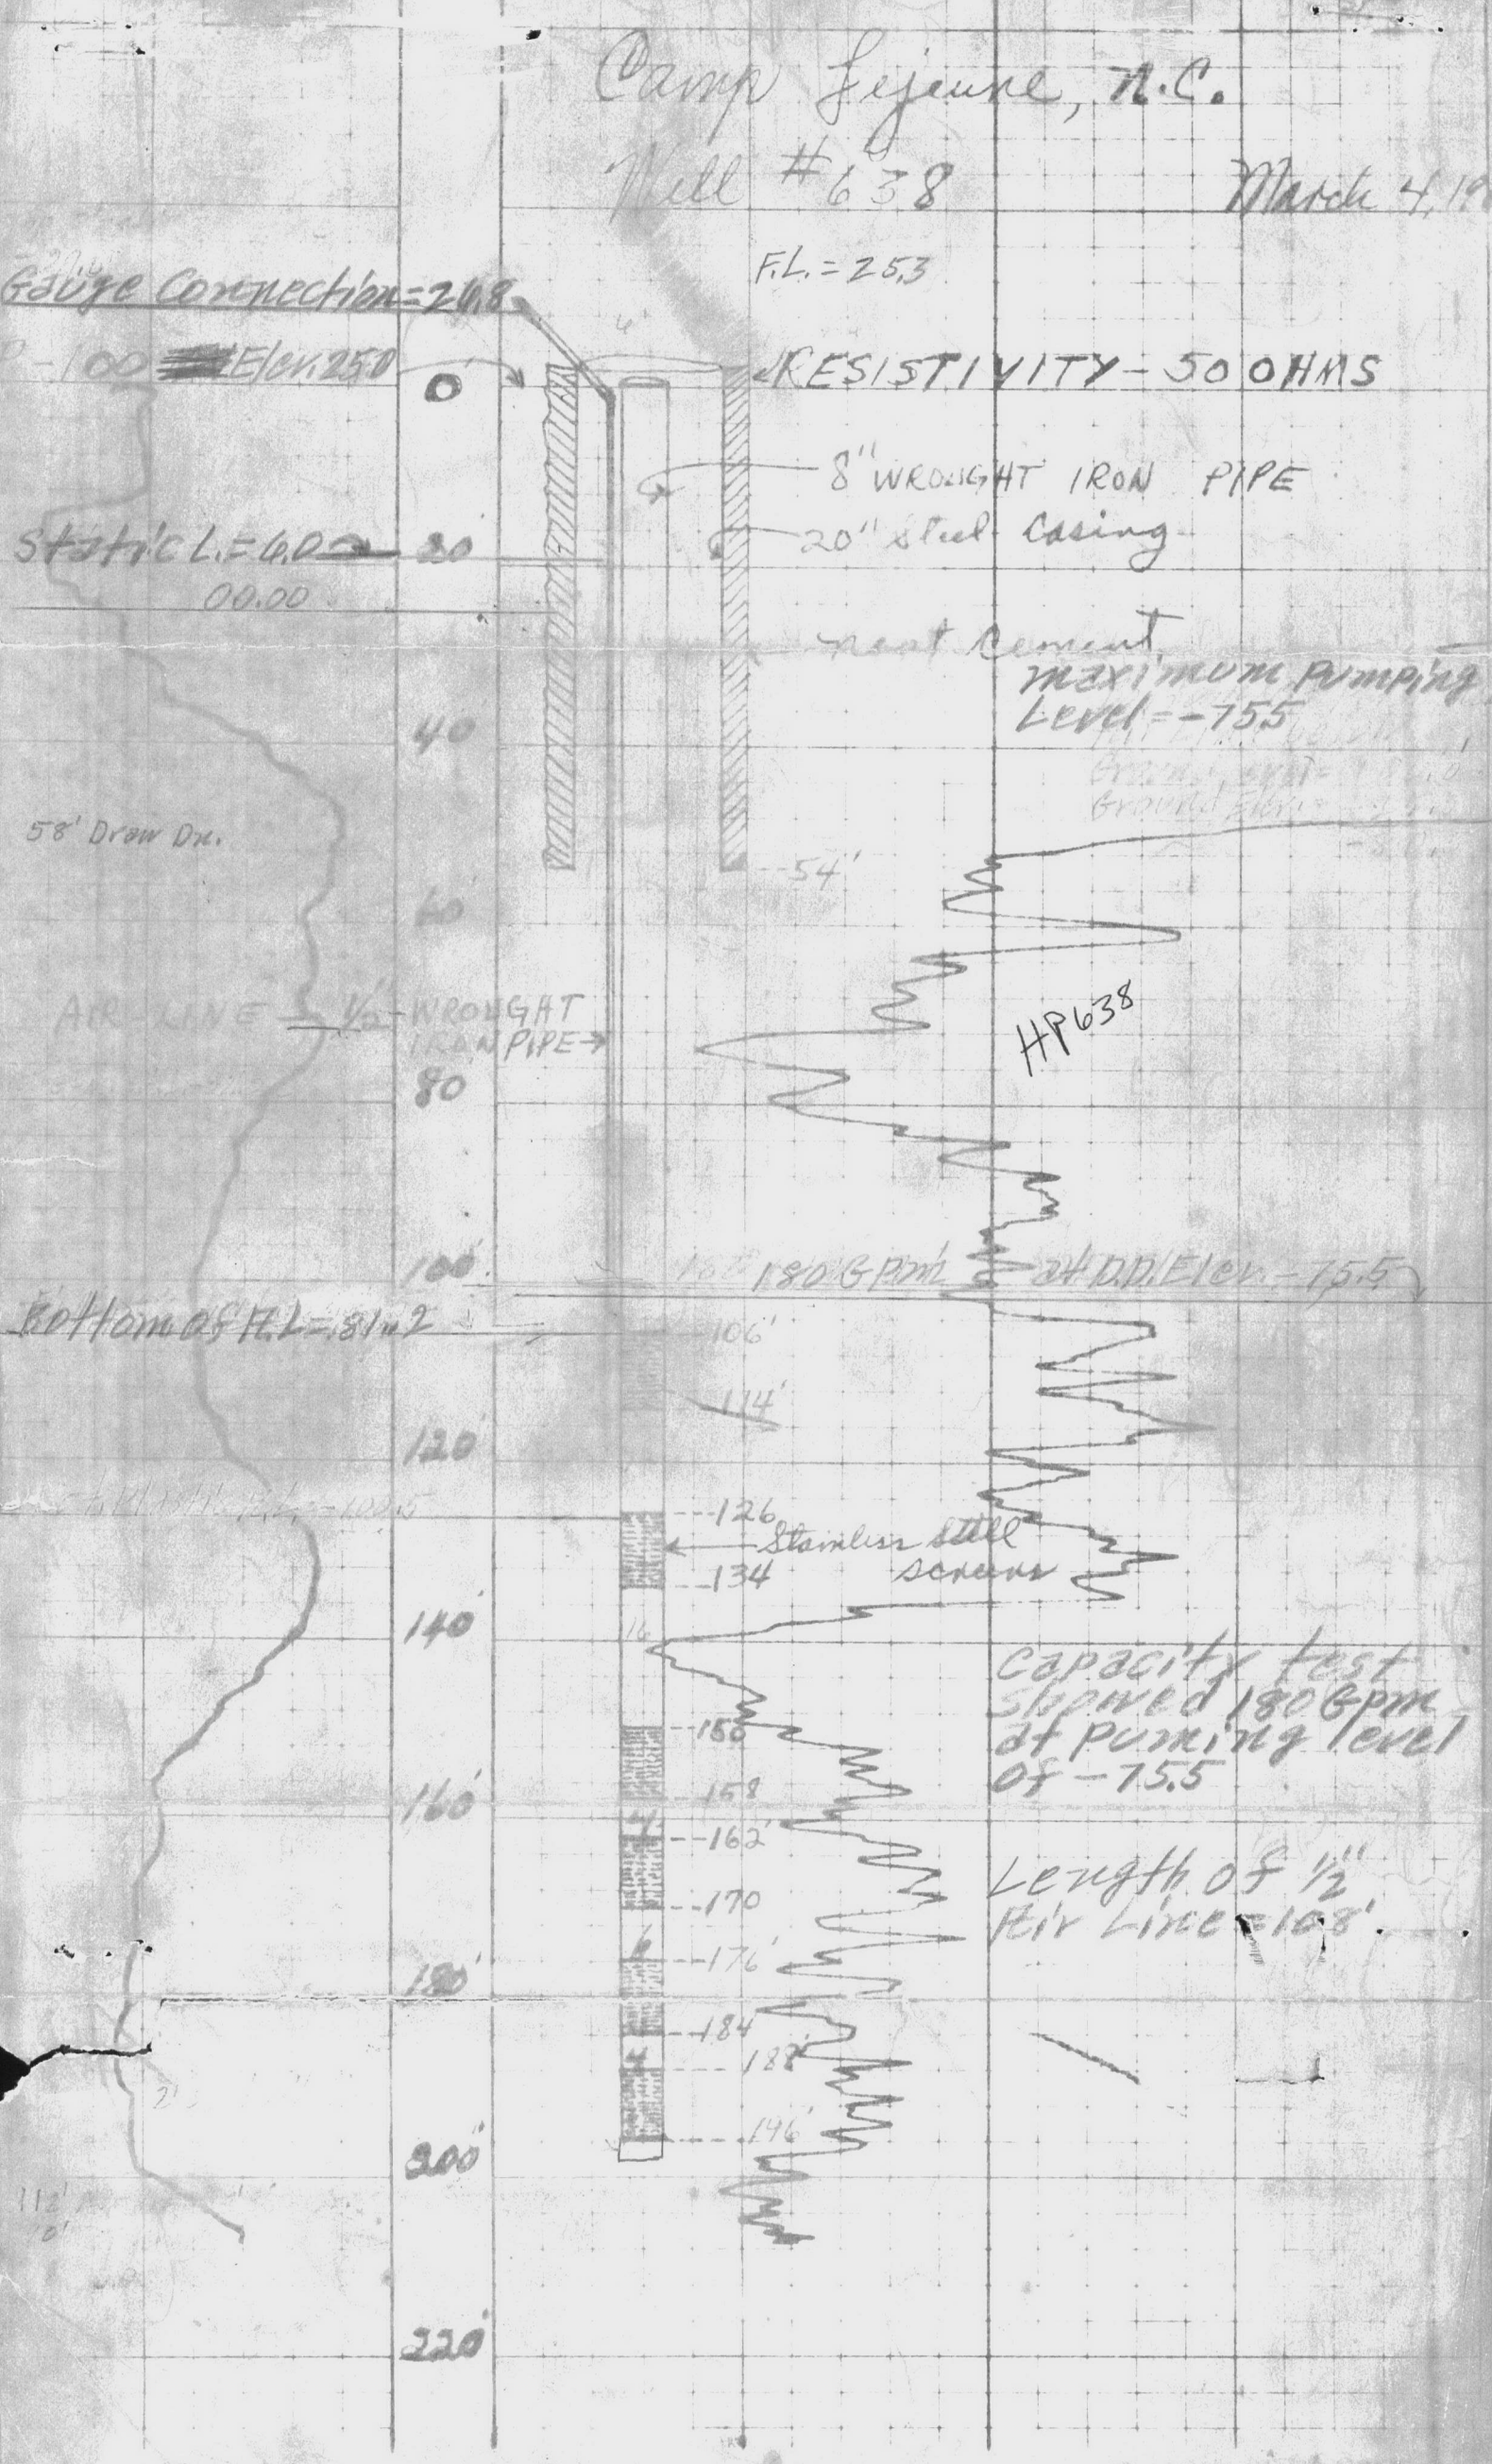 Camp Lejeune, N.C.
Well #638
March 4, 19
F.L. = 25.3
Gauge Connection = 26.8
6"
-100 Elev. 25.0
0
RESISTIVITY - 50 OHMS
8" WROUGHT IRON PIPE
20" Steel Casing
Static L. = 6.0
20
00.00
neat cement
maximum Pumping
Level = -75.5
40
58' Draw Dn.
54'
60
AIR LINE 1/2" WROUGHT
IRON PIPE
80
HP638
100
180 GPM at D.D. Elev. -75.5
Bottom of A.L = 81.2
106'
114'
120
-100.5
126
Stainless steel
screens
134
140
16
Capacity test
showed 180 Gpm
at Puming level
of -75.5
150
158
160
4
162
Length of 1/2"
Air Line = 108'
170
6
176'
180
184
4
188'
2'
196'
200
112'
220